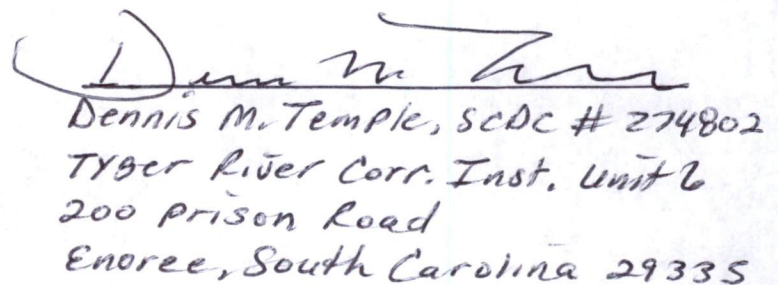 Dennis M. Temple, SCDC # 274802
Tyger River Corr. Inst. Unit 6
200 Prison Road
Enoree, South Carolina 29335